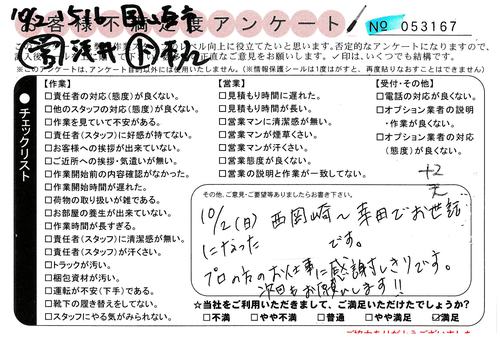 お客様不満足度アンケート
№ 053167
レベル向上に役立てたいと思います。否定的なアンケートになりますので、
正直なご意見をお願いします。✓印は、いくつでも結構です。
※このアンケートは、アンケート目的以外には使用いたしません。(※情報保護シールは1度はがすと、再度貼りなおすことはできません)
●チェックリスト
【作業】
□責任者の対応(態度)が良くない。
□他のスタッフの対応(態度)が良くない。
□作業を見ていて不安がある。
□責任者(スタッフ)に好感が持てない。
□お客様への挨拶が出来ていない。
□ご近所への挨拶・気遣いが無い。
□作業開始前の内容確認がなかった。
□作業開始時間が遅れた。
□荷物の取り扱いが雑である。
□お部屋の養生が出来ていない。
□作業時間が長すぎる。
□責任者(スタッフ)に清潔感が無い。
□責任者(スタッフ)が汗くさい。
□トラックが汚い。
□梱包資材が汚い。
□運転が不安(下手)である。
□靴下の履き替えをしてない。
□スタッフにやる気がみられない。
【営業】
□見積もり時間に遅れた。
□見積もり時間が長い。
□営業マンに清潔感が無い。
□営業マンが煙草くさい。
□営業マンが汗くさい。
□営業態度が良くない。
□営業の説明と作業が一致してない。
【受付・その他】
□電話の対応が良くない。
□オプション業者の説明
・作業が良くない。
□オプション業者の対応
(態度)が良くない。
その他、ご意見・ご要望等ありましたらお書き下さい。
10/2(日) 西岡崎~幸田でお世話
になった です。
プロの方のお仕事に感謝しきりです。
次回もお願いします!!
☆当社をご利用いただきまして、ご満足いただけたでしょうか?
□不満 □やや不満 □普通 □やや満足 ☑満足
ご協力ありがとうございました